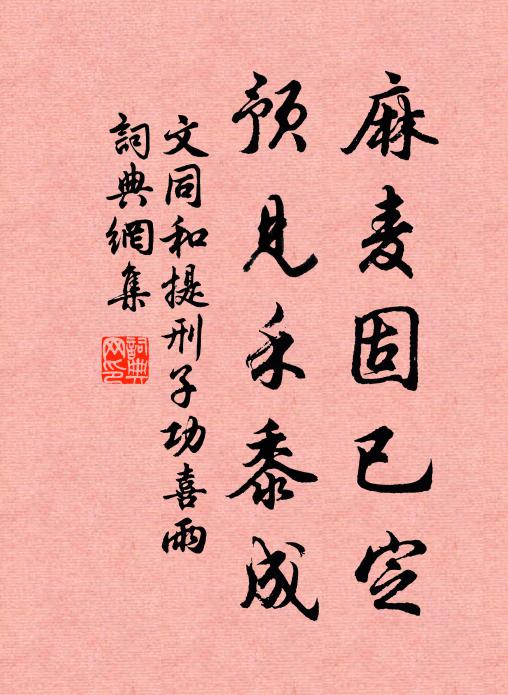 麻麦固已定
预见禾黍成
文同和提刑子功喜雨
詞典網集
詞典网印